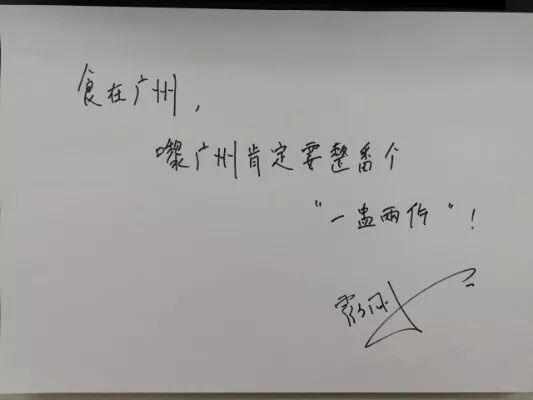 食在广州，
嚟广州肯定要整番个
"一盅两件"！